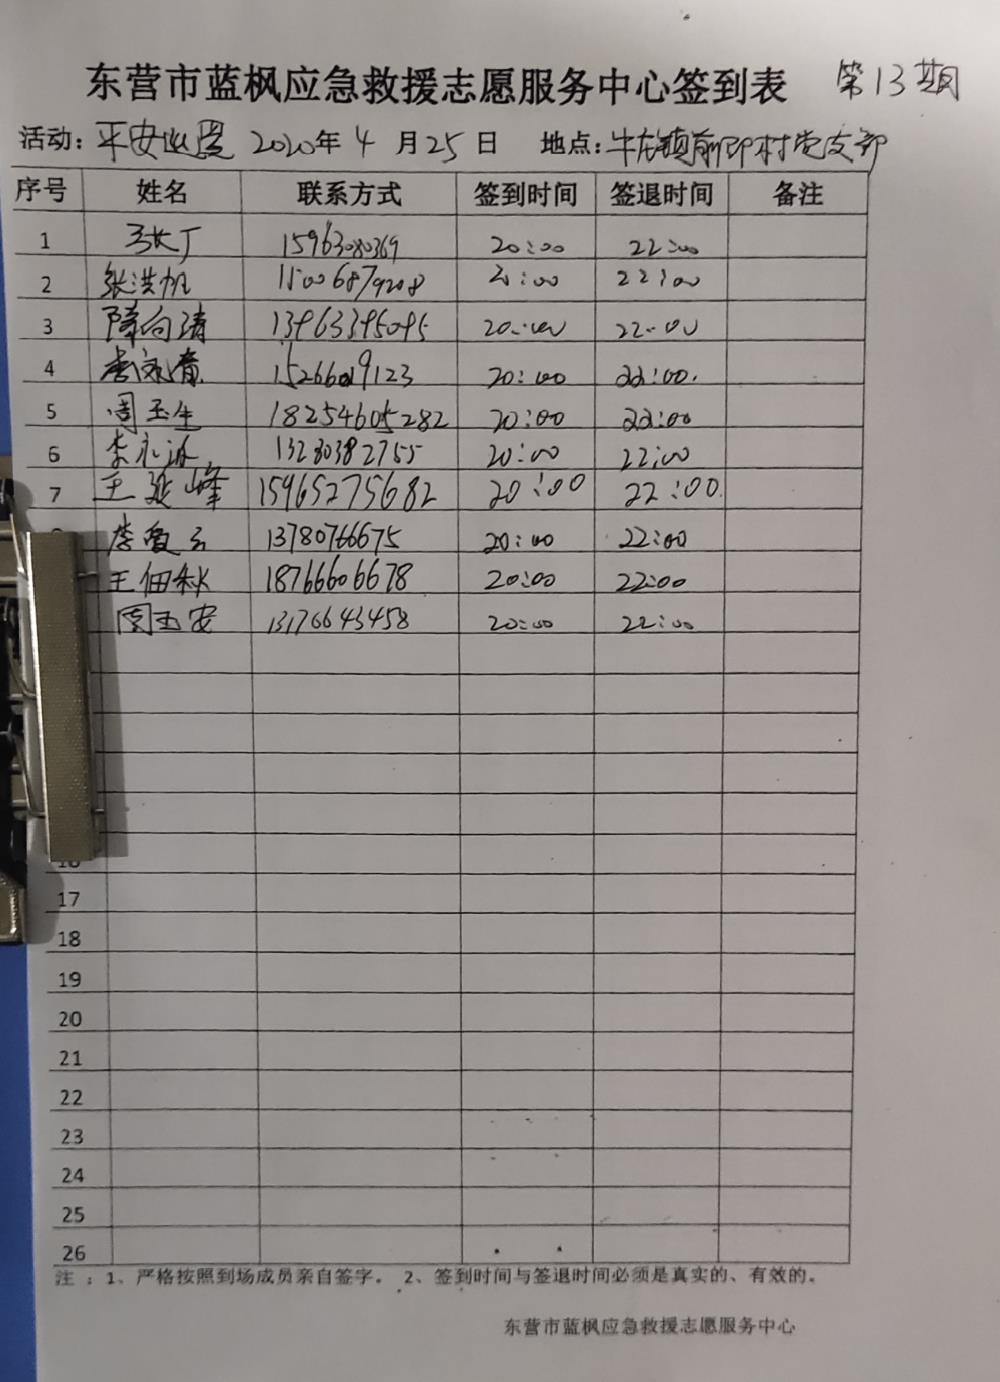 东营市蓝枫应急救援志愿服务中心签到表 第13期
活动: 平安巡逻 2020年 4 月 25 日 地点: 牛庄镇前邵村党支部
序号 姓名 联系方式 签到时间 签退时间 备注
1 张丁 15963080369 20:00 22:00
2 张洪帆 15006879208 20:00 22:00
3 隋向清 13963395095 20:00 22:00
4 15266019123 20:00 22:00.
5 周玉生 18254605282 20:00 22:00
6 李永波 13280382755 20:00 22:00
7 王延峰 15965275682 20:00 22:00.
李爱云 13780766675 20:00 22:00
王佃秋 18766606678 20:00 22:00
周玉安 13176643458 20:00 22:00
16
17
18
19
20
21
22
23
24
25
26
注 : 1、严格按照到场成员亲自签字。 2、签到时间与签退时间必须是真实的、有效的。
东营市蓝枫应急救援志愿服务中心